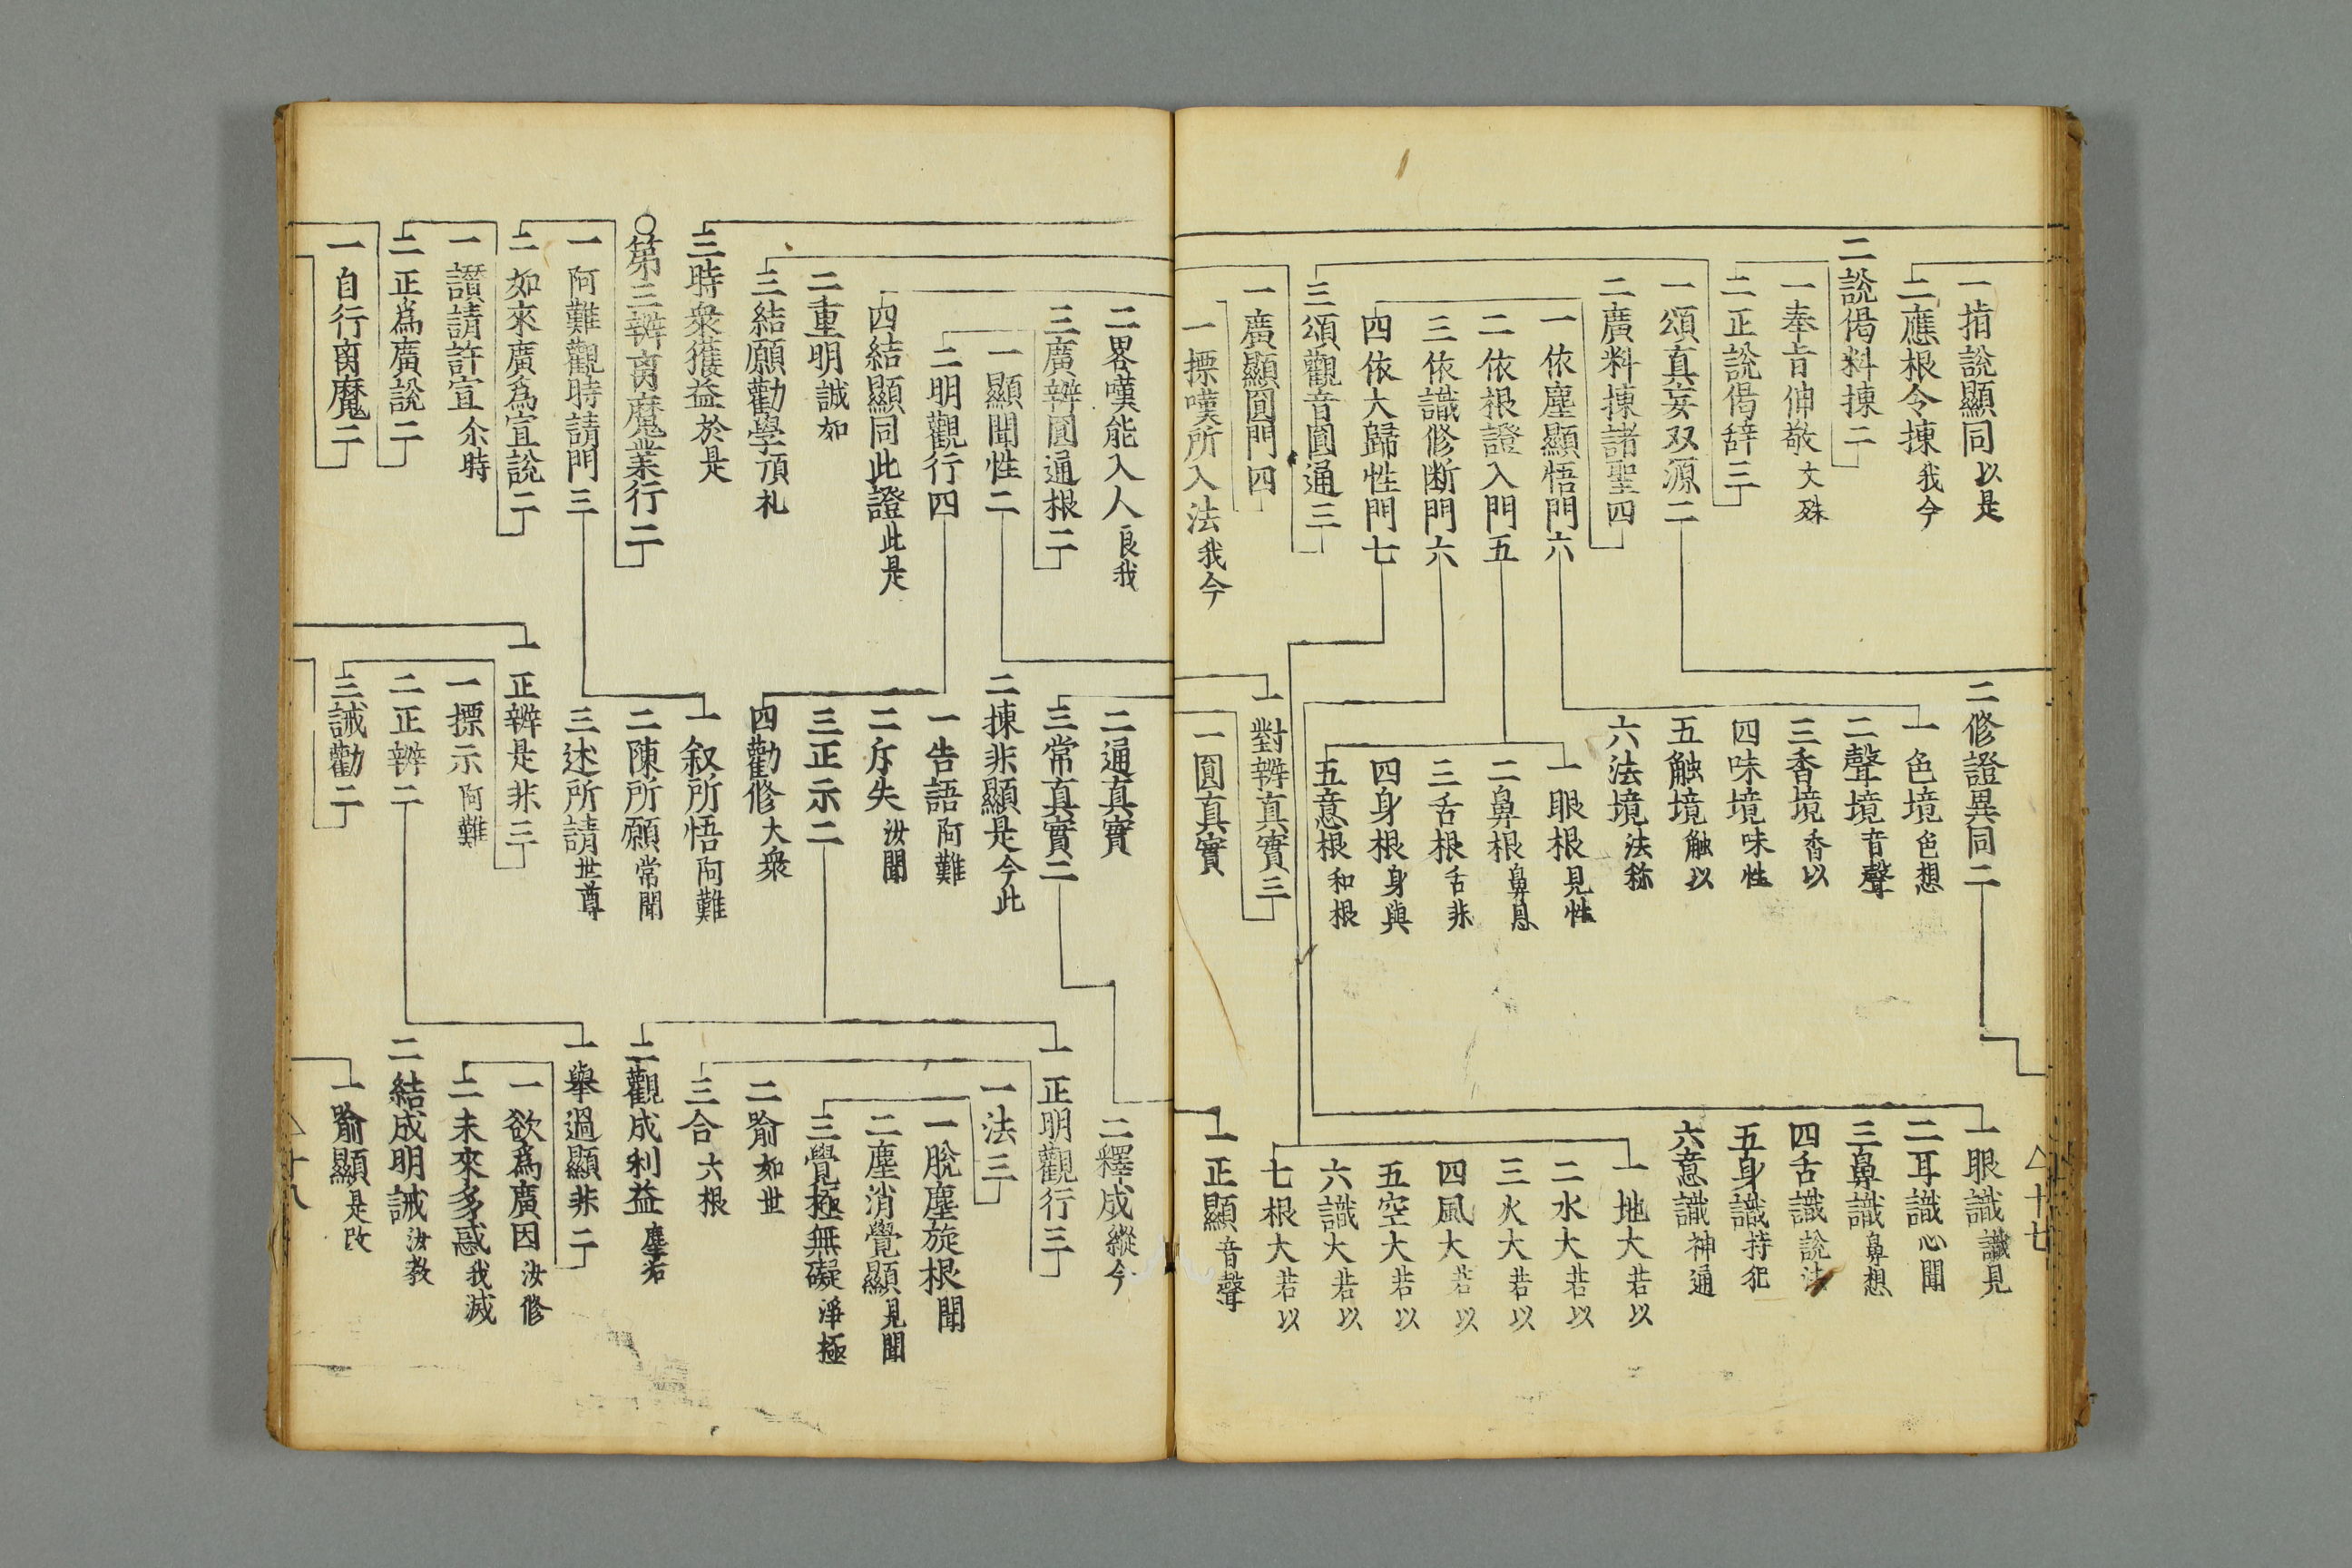 一指說顯同 以是
二應根令揀 我今
二說偈料揀二
一奉旨伸敬 文殊
二正說偈辞三
一頌真妄双源二
二廣料揀諸聖四
一依塵顯悟門六
二依根證入門五
三依識修断門六
四依大歸性門七
三頌觀音圓通三
一廣顯圓門四
一摽嘆所入法 我今
二修證異同二
一色境 色想
二聲境 音聲
三香境 香以
四味境 味性
五触境 触以
六法境 法称
一眼根 見性
二鼻根 鼻息
三舌根 舌非
四身根 身與
五意根 和根
一對辨真實三
一圓真實
一眼識 識見
二耳識 心聞
三鼻識 鼻想
四舌識 說法
五身識 持犯
六意識 神通
一地大 若以
二水大 若以
三火大 若以
四風大 若以
五空大 若以
六識大 若以
七根大 若以
一正顯 音聲
十七
二畧嘆能入人 良我
三廣辨圓通根二
一顯聞性二
二明觀行四
四結顯同此證 此是
二重明誠 如
三結願勸學 頂礼
三時衆獲益 於是
〇第三辨离魔業行二
一阿難觀時請門三
二如來廣爲宣說二
一讚請許宣 尒時
二正爲廣說二
一自行离魔二
二通真實
三常真實二
二揀非顯是 今此
一告語 阿難
二斥失 汝聞
三正示二
四勸修 大衆
一叙所悟 阿難
二陳所願 常聞
三述所請 世尊
一正辨是非三
一摽示 阿難
二正辨二
三誡勸二
二釋成 縱今
一正明觀行三
一法三
一脫塵旋根 聞
二塵消覺顯 見聞
三覺極無礙 淨極
二喻 如世
三合 六根
二觀成利益 塵若
一舉過顯非二
一欲爲廣因 汝修
二未來多惑 我滅
二結成明誡 汝教
一喻顯 是故
十八